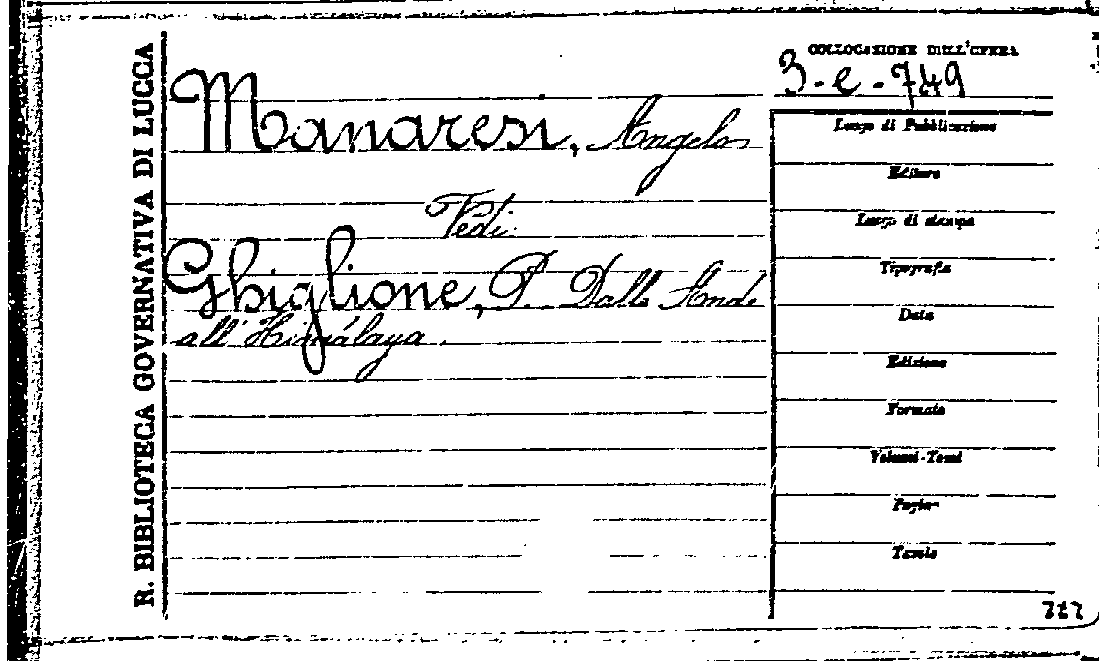 R. BIBLIOTECA GOVERNATIVA DI LUCCA
COLLOCAZIONE DELL'OPERA
3-e-749
Manaresi, Angelo
Vedi:
Ghiglione, P. Dalle Ande
all'Himálaya.
Luogo di Pubblicazione
Editore
Luogo di stampa
Tipografia
Data
Edizione
Formato
Volumi-Tomi
Pagine
Tavole